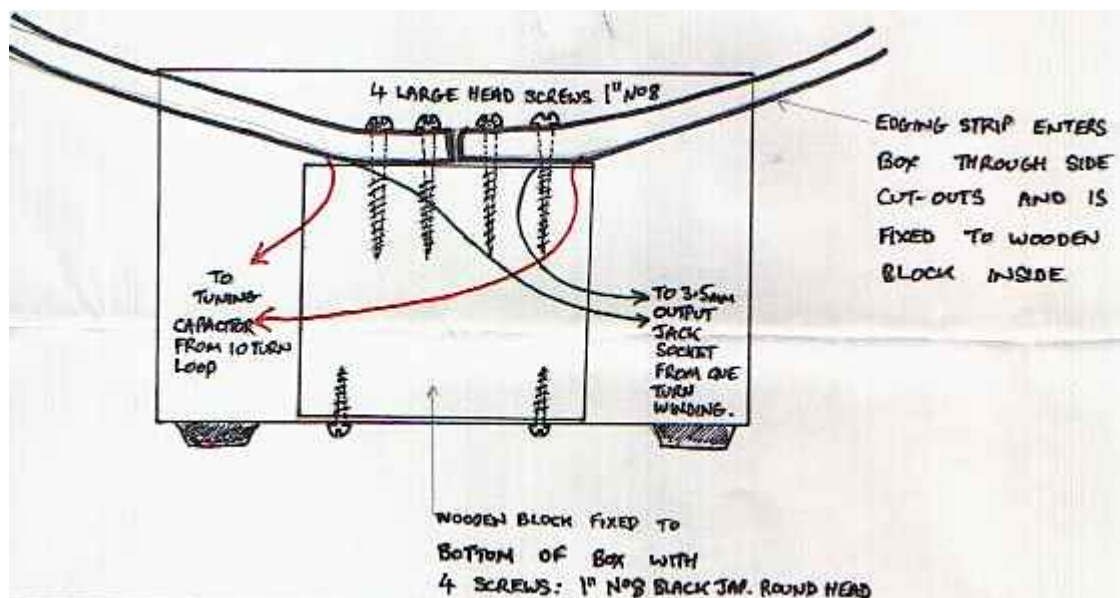 4 LARGE HEAD SCREWS 1" No8
EDGING STRIP ENTERS
BOX THROUGH SIDE
CUT-OUTS AND IS
FIXED TO WOODEN
BLOCK INSIDE
TO
TUNING
CAPACTOR
FROM 10 TURN
LOOP
TO 3.5mm
OUTPUT
JACK
SOCKET
FROM ONE
TURN
WINDING.
WOODEN BLOCK FIXED TO
BOTTOM OF BOX WITH
4 SCREWS: 1" No8 BLACK JAP. ROUND HEAD